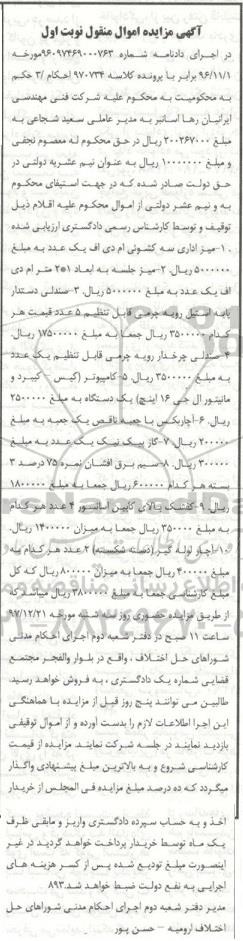 آگهی مزایده اموال منقول نوبت اول
در اجرای دادنامه شماره ۹۶۰۹۹۷۴۶۹۰۰۰۷۶۳مورخه
۹۶/۱۱/۱ برابر با پرونده کلاسه ۹۷۰۷۳۴ احکام /۳ حکم
به محکومیت به محکوم علیه شرکت فنی مهندسی
ایرانیان رها آسانبر به مدیر عاملی سعید شجاعی به
مبلغ ۲۰۰۲۶۷۰۰۰ ریال در حق محکوم له معصوم نجفی
و مبلغ ۱۰۰۰۰۰۰۰ ریال به عنوان نیم عشریه دولتی در
حق دولت صادر شده که در جهت استیفای محکوم
به و نیم عشر دولتی از اموال محکوم علیه اقلام ذیل
توقیف و توسط کارشناس رسمی دادگستری ارزیابی شده
۱-میز اداری سه کشوئی ام دی اف یک عدد به مبلغ
۵۰۰۰۰۰۰ ریال. ۲-میز جلسه به ابعاد ۱*۲ متر ام دی
اف یک عدد به مبلغ ۵۰۰۰۰۰۰ ریال. ۳-صندلی دستدار
پایه استیل رویه چرمی قابل تنظیم ۵ عدد قیمت هر
کدام ۳۵۰۰۰۰۰ ریال جمعا به مبلغ ۱۷۵۰۰۰۰۰ ریال.
۴-صندلی چرخدار رویه چرمی قابل تنظیم یک عدد
به مبلغ ۳۵۰۰۰۰۰ ریال. ۵-کامپیوتر (کیس - کیبرد و
مانیتور ال جی ۱۶ اینچ) یک دستگاه به مبلغ ۲۵۰۰۰۰۰
ریال. ۶-آچاربکس با جعبه ناقص یک جعبه به مبلغ
۲۰۰۰۰۰ ریال. ۷-گاز پیک نیک یک عدد به مبلغ
۳۰۰۰۰۰ ریال. ۸-سیم برق افشان نمره ۷۵ درصد ۳
بسته هر کدام ۶۰۰۰۰۰ ریال جمعا به مبلغ ۱۸۰۰۰۰۰
ریال. ۹-کفشک بالای کابین آسانسور ۴ عدد هر کدام
به مبلغ ۳۵۰۰۰۰ ریال جمعا به میزان ۱۴۰۰۰۰۰ ریال.
۱۰-آچار لوله گیر (دسته شکسته) ۲ عدد هر کدام به
مبلغ ۴۰۰۰۰۰ ریال جمعا به میزان ۸۰۰۰۰۰ ریال که کل
مبلغ کارشناسی جمعا به مبلغ ۳۸۰۰۰۰۰۰ ریال میباشد که
از طریق مزایده حضوری روز سه شنبه مورخه ۹۷/۱۲/۲۱
ساعت ۱۱ صبح در دفتر شعبه دوم اجرای احکام مدنی
شوراهای حل اختلاف ، واقع در بلوار والفجر مجتمع
قضایی شماره یک دادگستری ، به فروش خواهد رسید.
طالبین می توانند پنج روز قبل از مزایده با هماهنگی
این اجرا اطلاعات لازم را بدست آورده و از اموال توقیفی
بازدید نمایند در جلسه شرکت نمایند مزایده از قیمت
کارشناسی شروع و به بالاترین مبلغ پیشنهادی واگذار
میگردد که ده درصد مبلغ مزایده فی المجلس از خریدار
اخذ و به حساب سپرده دادگستری واریز و مابقی ظرف
یک ماه توسط خریدار پرداخت خواهد گردید در غیر
اینصورت مبلغ تودیع شده پس از کسر هزینه های
اجرایی به نفع دولت ضبط خواهد شد.۸۹۳
مدیر دفتر شعبه دوم اجرای احکام مدنی شوراهای حل
اختلاف ارومیه - حسن پور